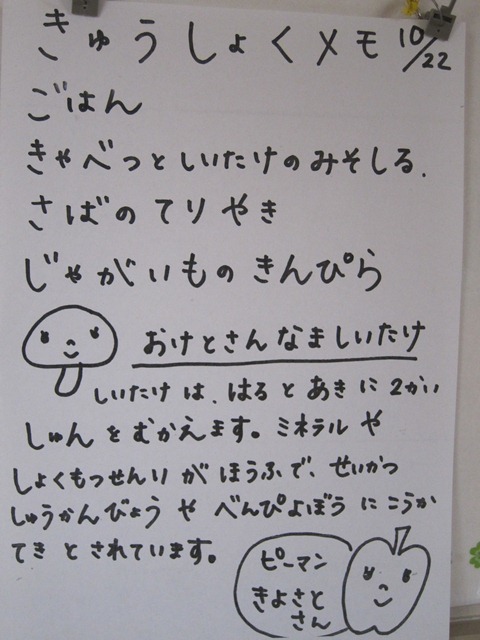 きゅうしょくメモ 10/22
ごはん
きゃべつとしいたけのみそしる.
さばのてりやき
じゃがいものきんぴら
おけとさんなましいたけ
しいたけは、はるとあきに2かい
しゅんをむかえます。ミネラルや
しょくもつせんいがほうふで、せいかつ
しゅうかんびょうやべんぴよぼうにこうか
てきとされています。
ピーマン
きよさと
さん